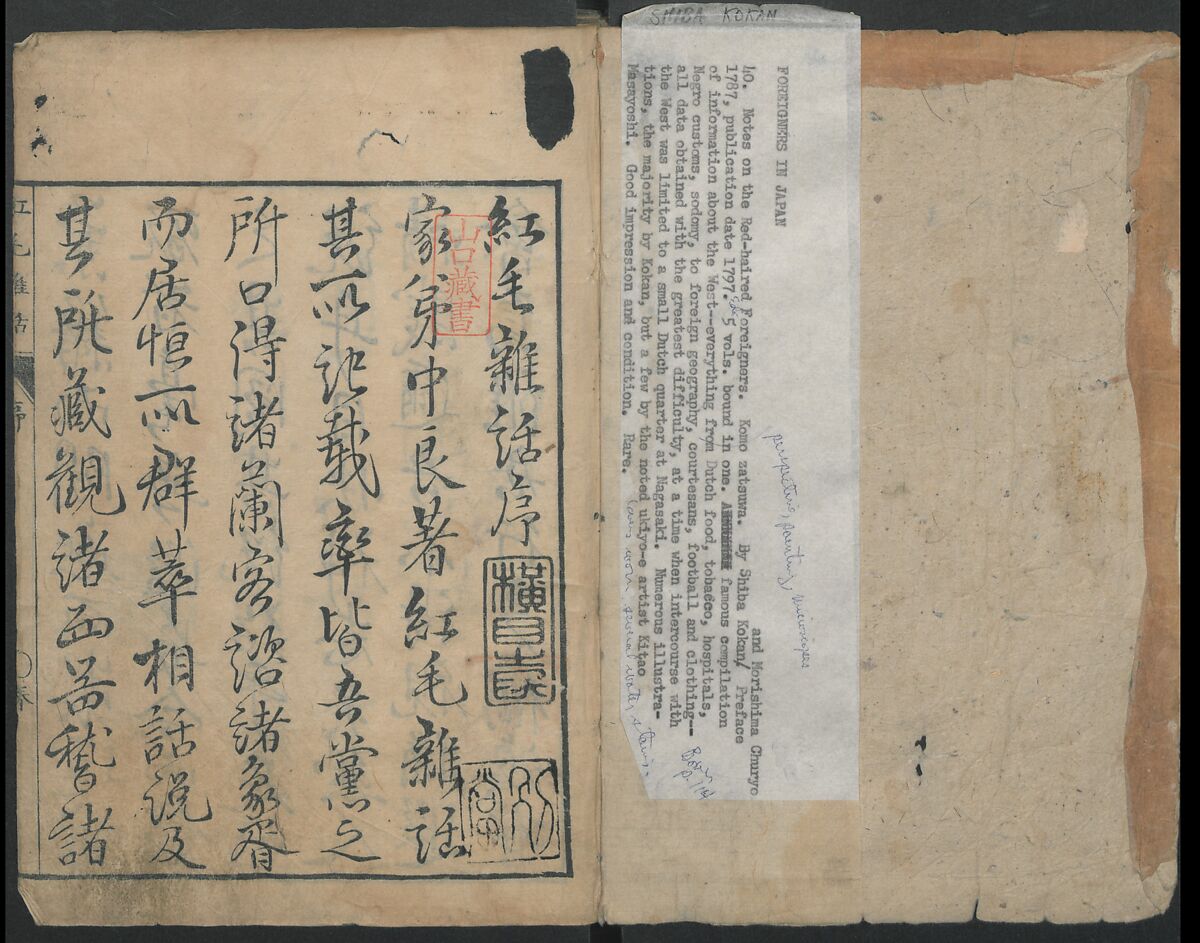 SHIBA KOKAN
FOREIGNERS IN JAPAN
and Morishima Churyo
40. Notes on the Red-haired Foreigners. Komo zatsuwa. By Shiba Kokan/ Preface
1787, publication date 1797. 5 vols. bound in one. famous compilation
of information about the West--everything from Dutch food, tobacco, hospitals,
Negro customs, sodomy, to foreign geography, courtesans, football and clothing--
all data obtained with the greatest difficulty, at a time when intercourse with
the West was limited to a small Dutch quarter at Nagasaki. Numerous illustra-
tions, the majority by Kokan, but a few by the noted ukiyo-e artist Kitao
Masayoshi. Good impression and condition. Rare.
perspective, painting, microscopes
covers worn, several water stains.
紅毛雜話序
家弟中良著紅毛雜話
其所記載率皆吾黨之
所口得諸蘭客謬諸象胥
而居恒所群萃相話説及
其所藏觀諸西器稽諸
山口藏書
紅毛雜話
序